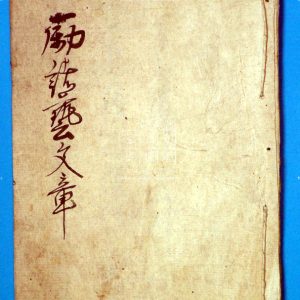 勵誌藝文章